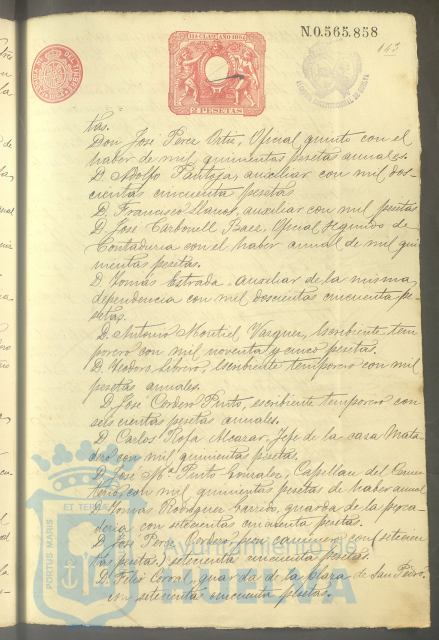 N.0.565.858
11ª CLASE AÑO 1894
143
2 PESETAS
tas.
Don José Perez Ortiz, Oficial quinto con el
haber de mil quinientas pesetas anuales.
D. Adolfo Pantoja, auxiliar con mil dos-
cientas cincuenta pesetas
D. Francisco Llanos, auxiliar con mil pesetas
D. José Carbonell Baez, Oficial segundo de
Contaduría con el haber anual de mil qui
nientas pesetas.
D. Tomás Estrada auxiliar de la misma
dependencia con mil doscientas cincuenta pe-
setas.
D. Antonio Montiel Vazquez, Escribiente tem
porero con mil noventa y cinco pesetas.
D. Teodoro Librero, Escribiente temporero con mil
pesetas anuales.
D. José Cordero Pinto, escribiente temporero con
seiscientas pesetas anuales.
D. Carlos Rofa Alcazar, Jefe de la casa Mata-
dero con mil quinientas pesetas.
D. José Mª Pinto Gonzalez, Capellan del Cemen
terio con mil quinientas pesetas de haber anual
D. Tomás Rodriguez Garrido, guarda de la pesca-
deria con setecientas cincuenta pesetas.
D. José Perez Cordero, peon caminero con (setecien
tas pesetas) setecientas cincuenta pesetas.
D. Felix Corral, guarda de la plaza de San Pedro
con setecientas cincuenta pesetas.
PORTUS MARIS
ET TERRÆ
Ayuntamiento de
HUELVA